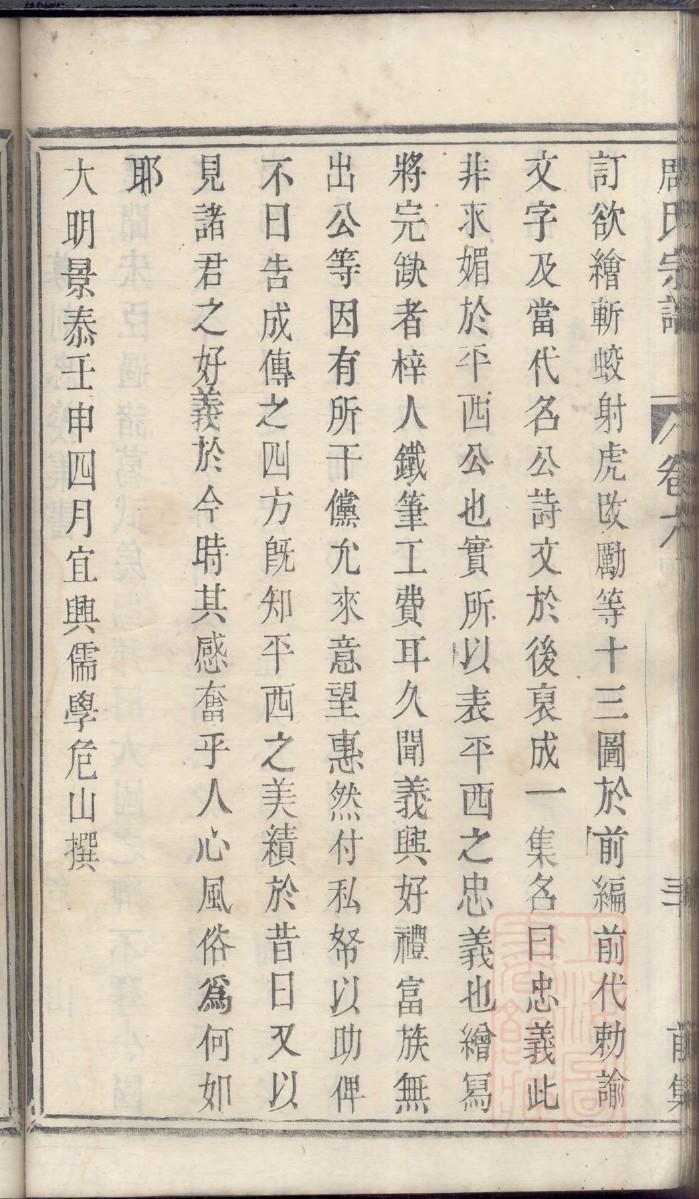 周氏宗譜 卷六 三十 前集
訂欲繪斬蛟射虎改勵等十三圖於前編前代勅諭
文字及當代名公詩文於後裒成一集名曰忠義此
非求媚於平西公也實所以表平西之忠義也繪冩
將完缺者梓人鐵筆工費耳久聞義興好禮富族無
出公等因有所干儻允來意望惠然付私帑以助俾
不日告成傳之四方旣知平西之美績於昔日又以
見諸君之好義於今時其感奮乎人心風俗爲何如
耶
大明景泰壬申四月宜興儒學危山撰